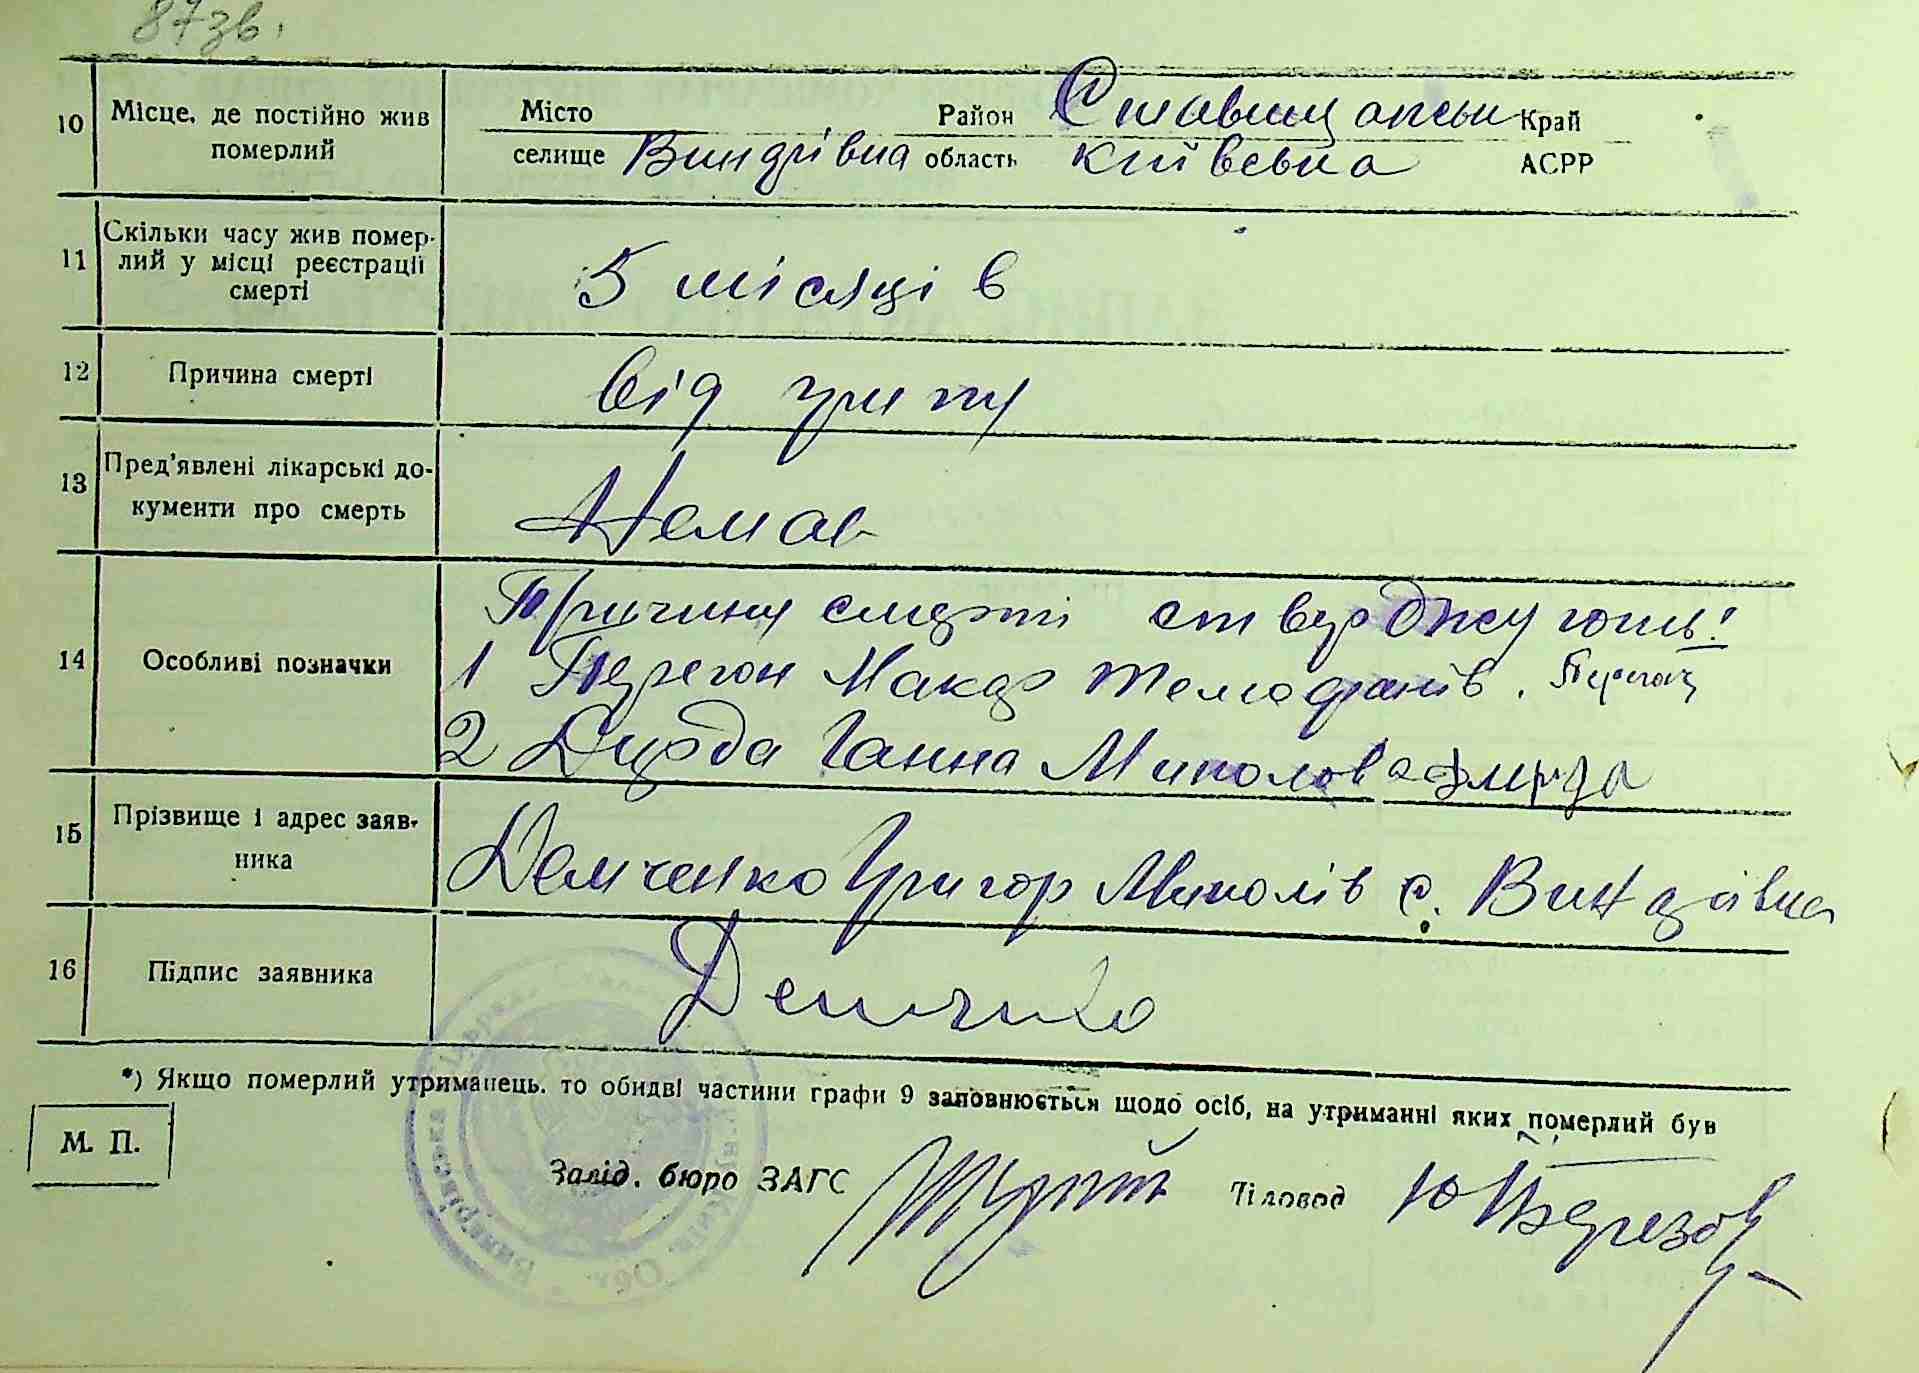 87зв.
10 Місце, де постійно жив померлий
Місто Район Ставищанськ Край
селище область київська АСРР
11 Скільки часу жив помер-
лий у місці реєстрації
смерті
5 місяці в
12 Причина смерті
від грипу
13 Пред'явлені лікарські до-
кументи про смерть
Немає
14 Особливі позначки
Причину смерті стверджують:
1 Перегон Макар
2 Ганна Миколова
15 Прізвище і адрес заяв-
ника
Демченко Григор Миколів с.
16 Підпис заявника
Демченко
*) Якщо померлий утриманець, то обидві частини графи 9 заповнюється щодо осіб, на утриманні яких померлий був
М. П.
Завід. бюро ЗАГС Діловод